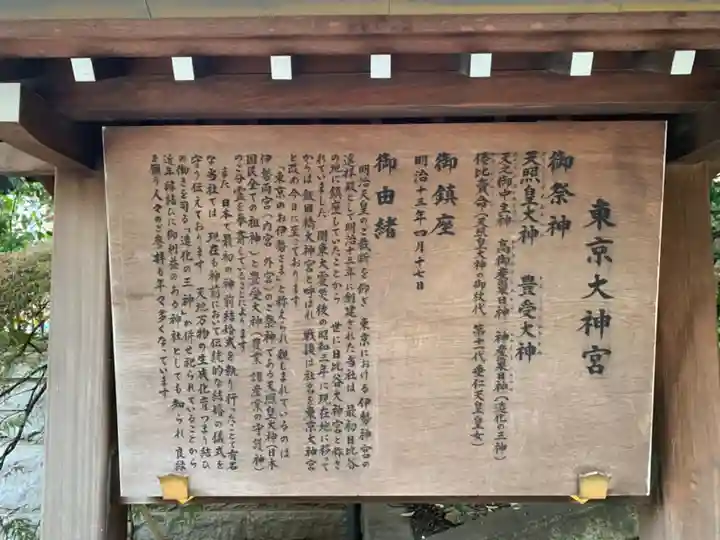 東京大神宮
御祭神
天照皇大神　豊受大神
天之御中主神　高御産巣日神　神産巣日神(造化の三神)
倭比賣命(天照皇大神の御杖代　第十一代垂仁天皇皇女)
御鎮座
明治十三年四月十七日
御由緒
明治天皇のご裁断を仰ぎ 東京における伊勢神宮の
遥拝殿として明治十三年に創建された当社は 最初日比谷
の地に鎮座していたことから 世に日比谷大神宮と称さ
れていました 関東大震災後の昭和三年に現在地に移って
からは飯田橋大神宮と呼ばれ 戦後は社名を東京大神宮
と改め今日に至っております
「東京のお伊勢さま」と称えられ親しまれているのは
伊勢両宮(内宮 外宮)のご祭神である天照皇大神(日本
国民全ての祖神)と豊受大神(農業 諸産業の守護神)
のご分霊を奉斎していることによります
また 日本で最初の神前結婚式を執り行ったことで有名
な当社では 現在も神前において伝統的な結婚の儀式を
守り伝えております 天地万物の生成化育つまり結び
の働きを司る「造化の三神」が併せ祀られていることから
近年縁結びに御利益のある神社としても知られ 良縁
を願う人々のご参拝も年々多くなっています